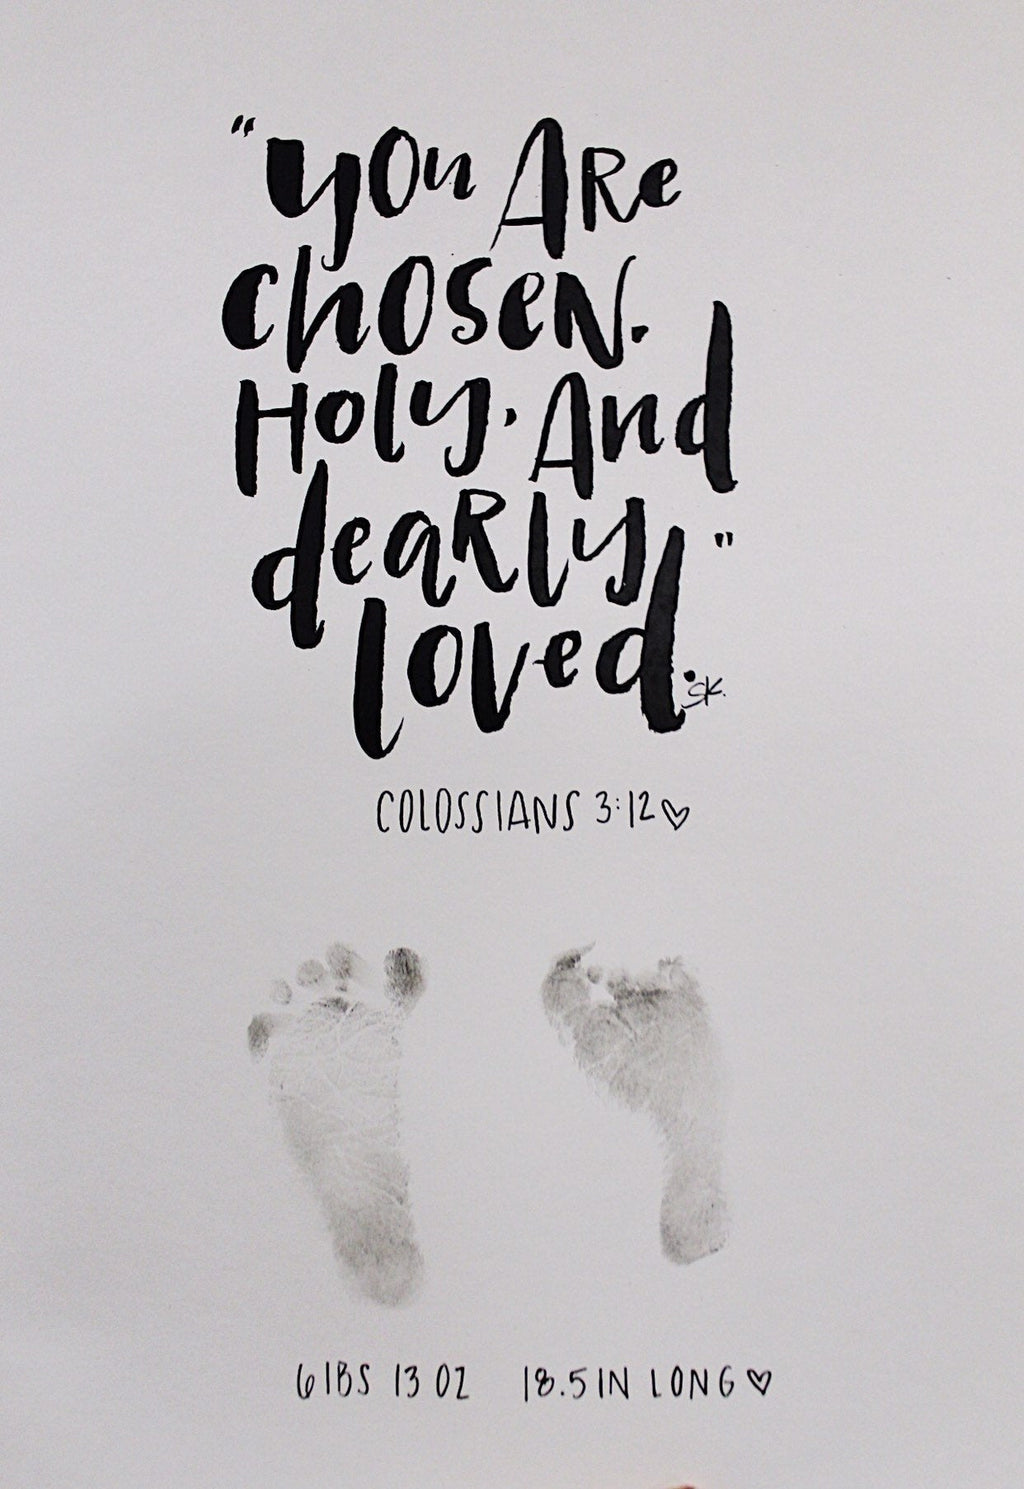 "You Are
chosen.
Holy, And
dearly
loved."
SK.
COLOSSIANS 3:12♡
6 lBS 13 OZ 18.5 IN LONG♡